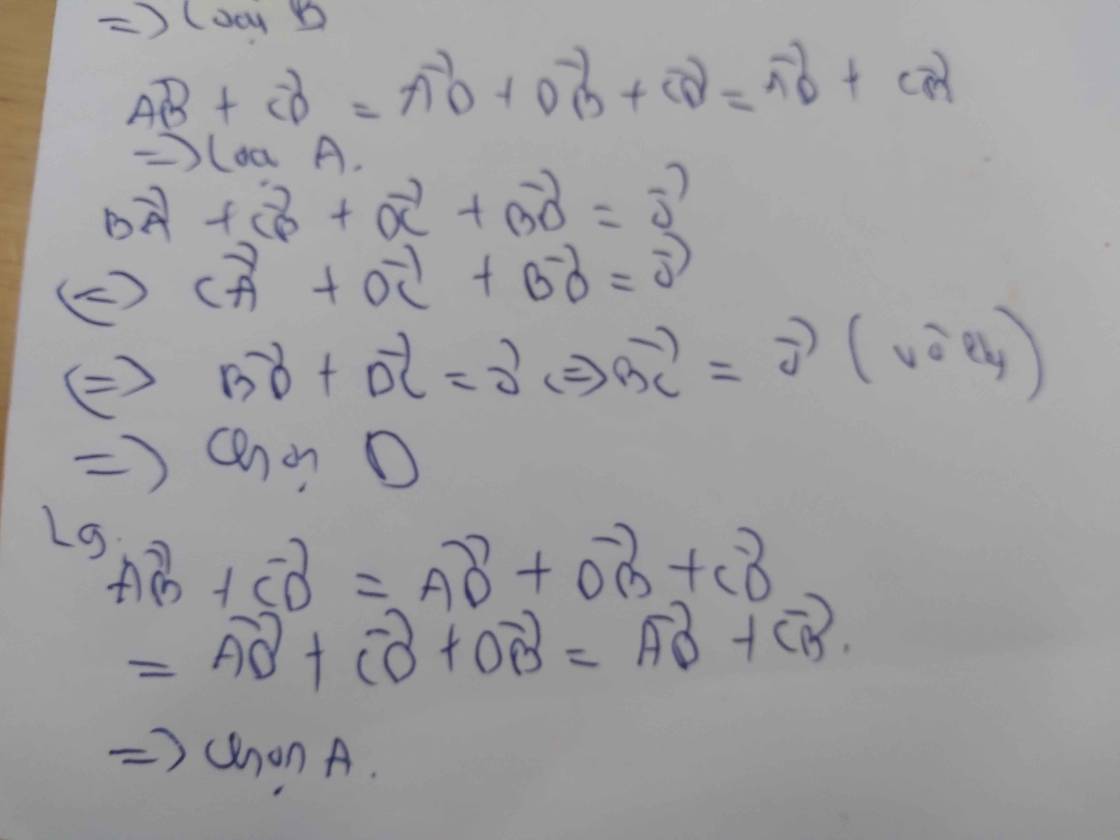 => Loại B
AB⃗ + CD⃗ = AD⃗ + DB⃗ + CD⃗ = AD⃗ + CB⃗
=> Loại A.
BA⃗ + CB⃗ + DC⃗ + BD⃗ = 0⃗
<=> CA⃗ + DC⃗ + BD⃗ = 0⃗
<=> BD⃗ + DC⃗ = 0⃗ <=> BC⃗ = 0⃗ (vô lý)
=> Chọn D
L9.
AB⃗ + CD⃗ = AD⃗ + DB⃗ + CD⃗
= AD⃗ + CD⃗ + DB⃗ = AD⃗ + CB⃗.
=> Chọn A.